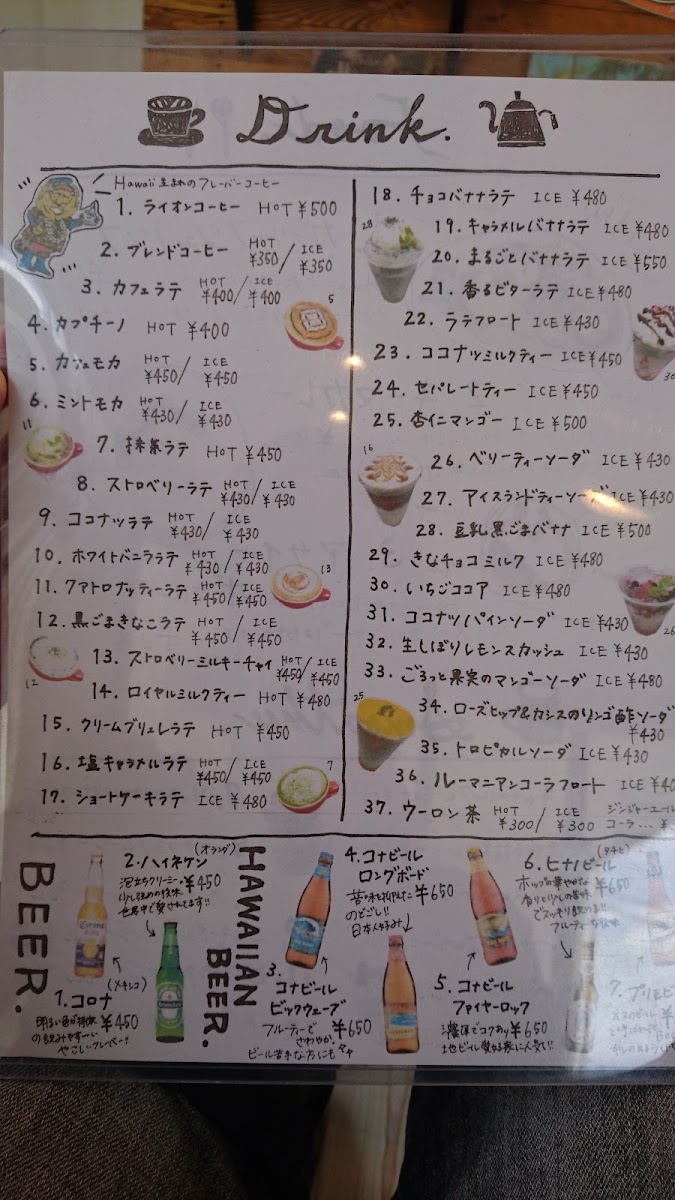 Drink.
Hawaii 生まれのフレーバーコーヒー
1. ライオンコーヒー HOT ¥500
2. ブレンドコーヒー HOT ¥350 / ICE ¥350
3. カフェラテ HOT ¥400 / ICE ¥400
4. カプチーノ HOT ¥400
5
5. カフェモカ HOT ¥450 / ICE ¥450
6. ミントモカ HOT ¥430 / ICE ¥430
11
7. 抹茶ラテ HOT ¥450
8. ストロベリーラテ HOT ¥430 / ICE ¥430
9. ココナッツラテ HOT ¥430 / ICE ¥430
10. ホワイトバニララテ HOT ¥430 / ICE ¥430
11. クアトロナッティーラテ HOT ¥450 / ICE ¥450
13
12. 黒ごまきなこラテ HOT ¥450 / ICE ¥450
12
13. ストロベリーミルキーチャイ HOT ¥450 / ICE ¥450
14. ロイヤルミルクティー HOT ¥480
15. クリームブリュレラテ HOT ¥450
16. 塩キャラメルラテ HOT ¥450 / ICE ¥450
7
17. ショートケーキラテ ICE ¥480
18. チョコバナナラテ ICE ¥480
28
19. キャラメルバナナラテ ICE ¥480
20. まるごとバナナラテ ICE ¥550
21. 香るビターラテ ICE ¥480
22. ラテフロート ICE ¥430
23. ココナツミルクティー ICE ¥450
30
24. セパレートティー ICE ¥450
25. 杏仁マンゴー ICE ¥500
16
26. ベリーティーソーダ ICE ¥430
27. アイスランドティーソーダ ICE ¥430
28. 豆乳黒ごまバナナ ICE ¥500
29. きなチョコミルク ICE ¥480
30. いちごココア ICE ¥480
31. ココナツパインソーダ ICE ¥430
26
32. 生しぼりレモンスカッシュ ICE ¥430
33. ごろっと果実のマンゴーソーダ ICE ¥480
25
34. ローズヒップ&カシスのリンゴ酢ソーダ ¥430
35. トロピカルソーダ ICE ¥430
36. ルーマニアンコーラフロート ICE
37. ウーロン茶 HOT ¥300 / ICE ¥300
ジンジャーエール
コーラ...
BEER.
1. コロナ (メキシコ)
¥450
やさしいフレーバー!
2. ハイネケン (オランダ)
泡立ちクリーミー ¥450
世界中で愛されてます!!
HAWAIIAN BEER.
3. コナビール
ビッグウェーブ
フルーティーで ¥650
さわやか。
ビール苦手な方にも
4. コナビール
ロングボード
苦味を抑えた ¥650
のどごし!
日本人好み
5. コナビール
ファイヤーロック
濃厚でコクあり ¥650
地ビール愛好家に人気!!
6. ヒナノビール (タヒチ)
ホップの華やかな ¥650
香りと少しの苦味
でスッキリ飲める!!
フルーティーな後味